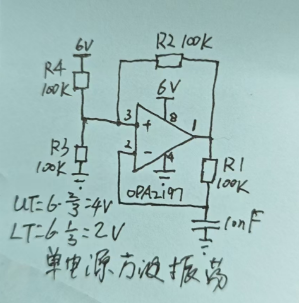 R2 100K
6V
R4
100K
6V
3
+
8
1
2
-
4
R3
100K
R1
100K
OPA2197
UT=6·2/3=4V
LT=6·1/3=2V
10nF
单电源方波振荡